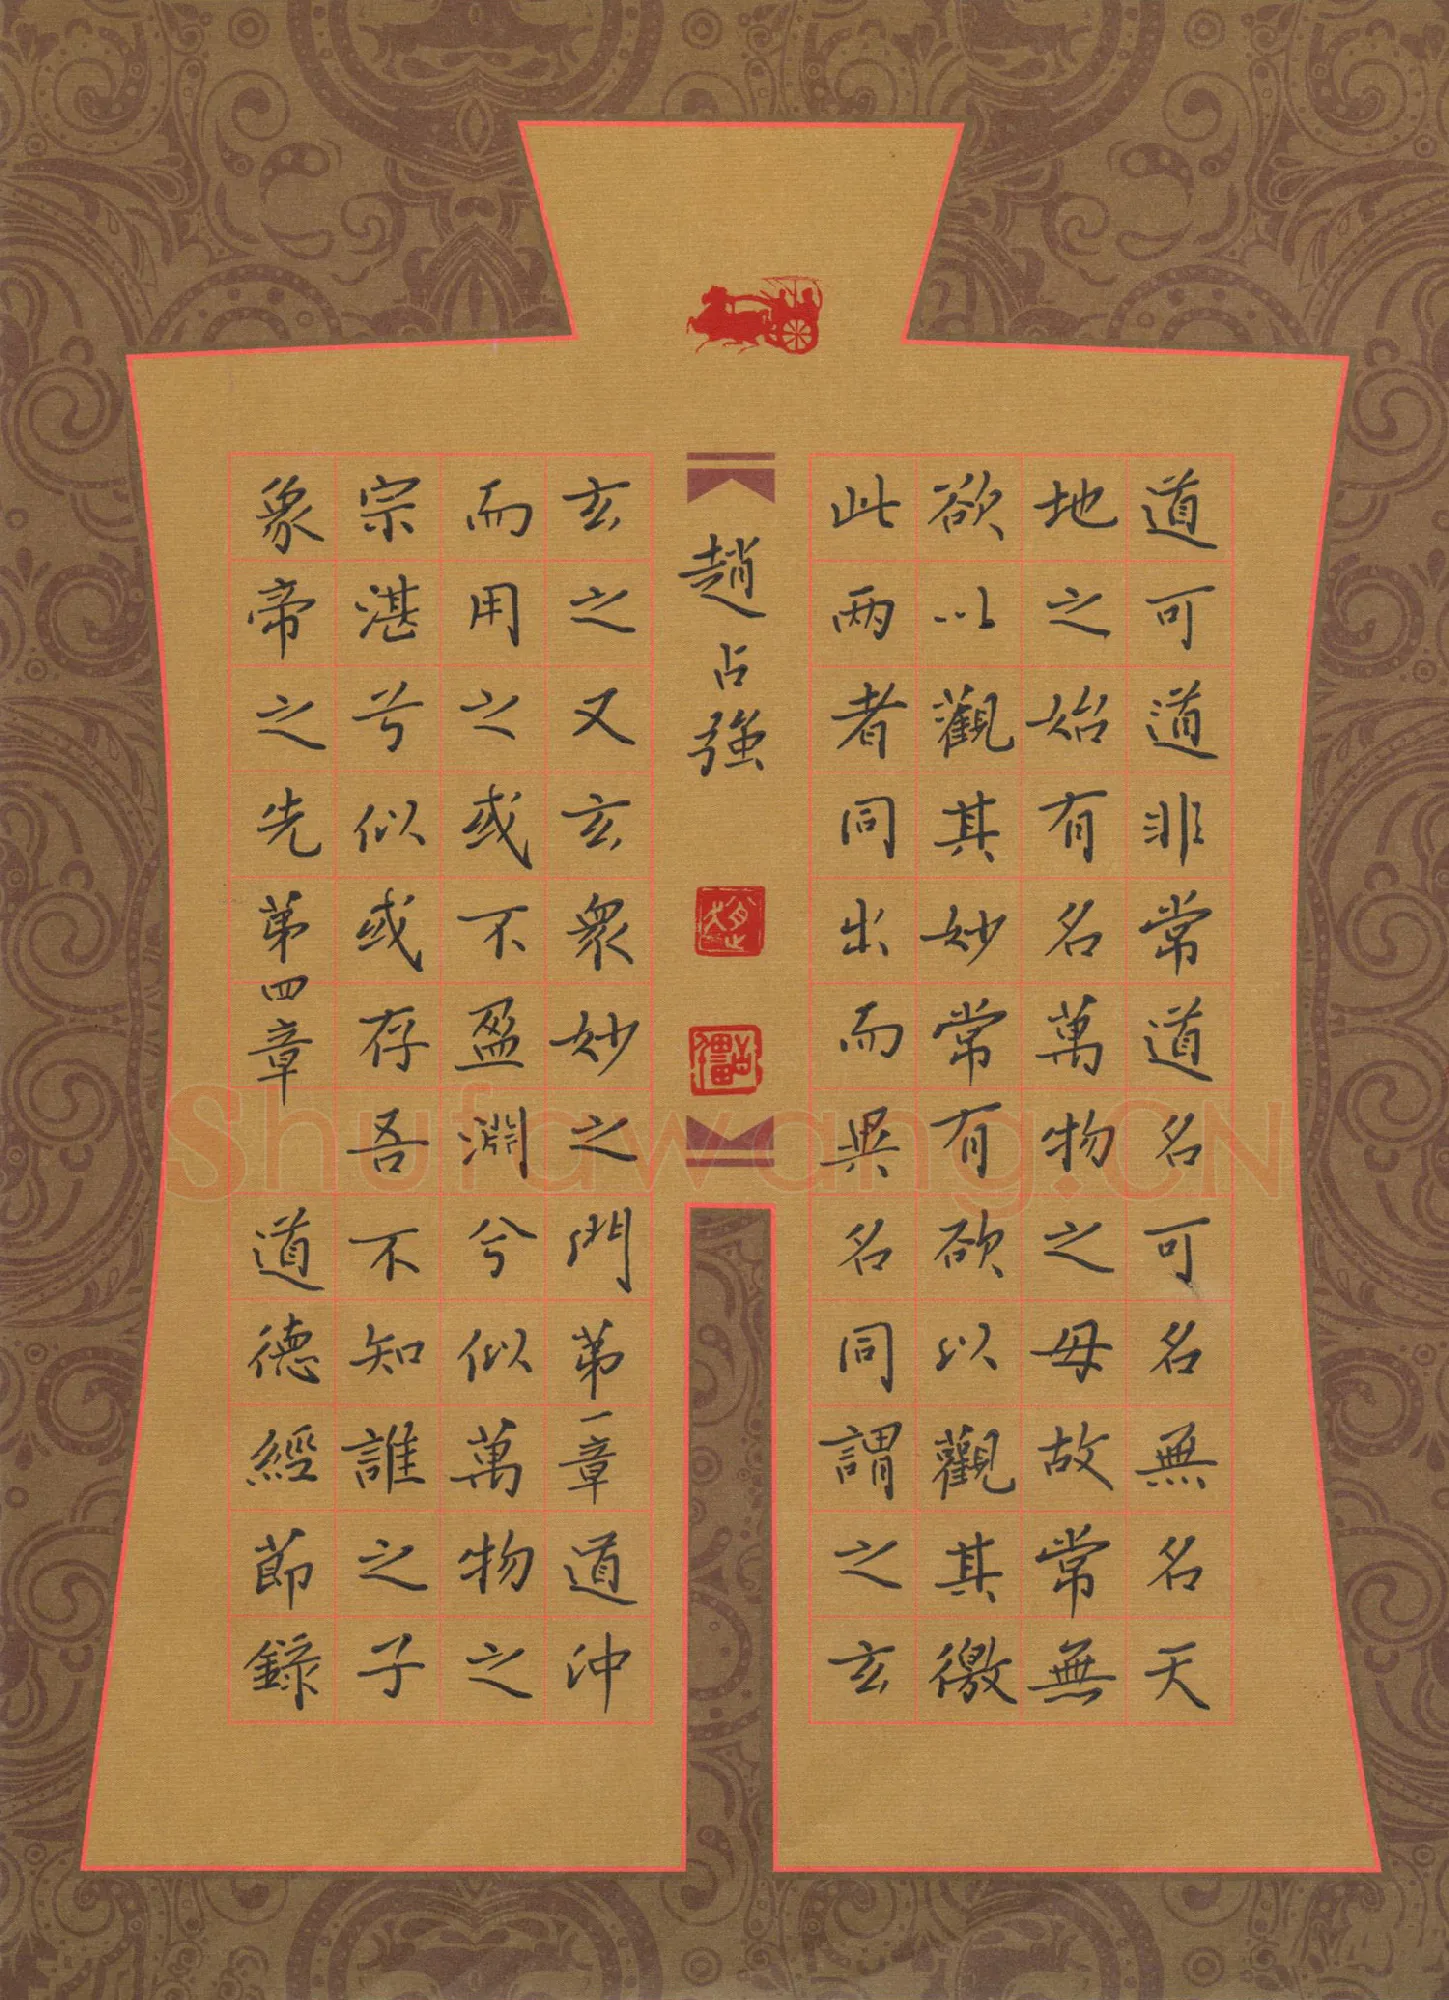 道可道非常道名可名無名天
地之始有名萬物之母故常無
欲以觀其妙常有欲以觀其徼
此兩者同出而異名同謂之玄
趙占強
玄之又玄衆妙之門第一章道沖
而用之或不盈淵兮似萬物之
宗湛兮似或存吾不知誰之子
象帝之先第四章 道德經節錄
Shufawang.CN